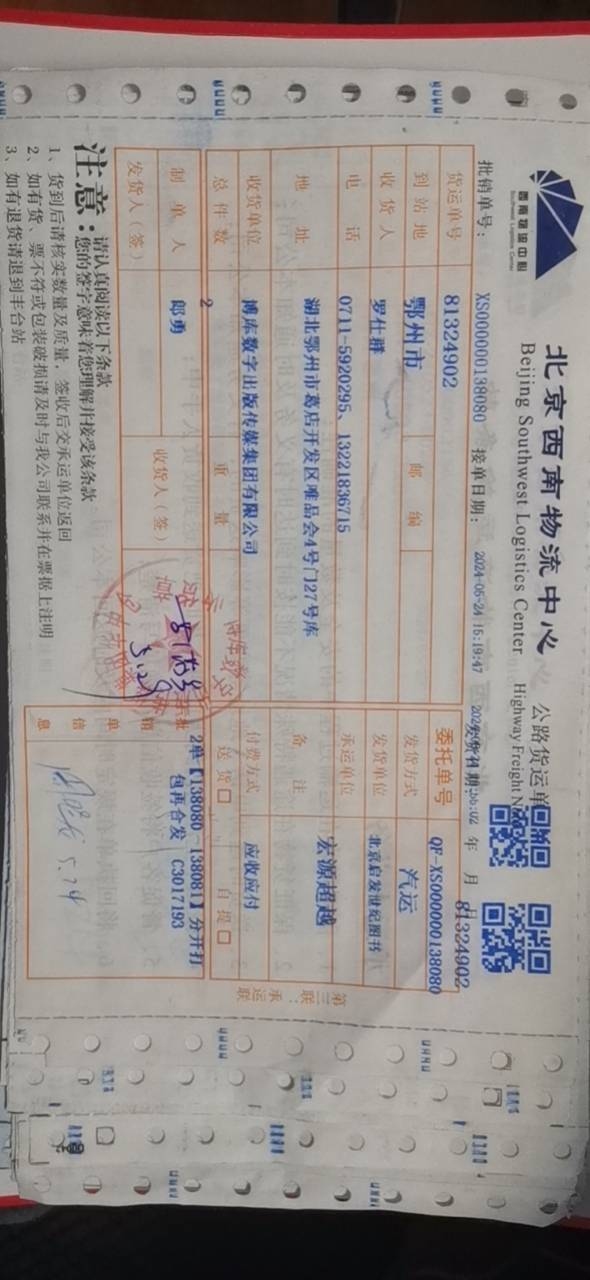 西南物流中心
Southwest Logistics Center
北京西南物流中心
公路货运单
Beijing Southwest Logistics Center
Highway Freight
批销单号： XS000000138080 接单日期： 2024-05-24 15:19:47 发货日期： 年 月
81324902
货运单号 81324902 委托单号 QF-XS000000138080
到站地 鄂州市 邮编 发货方式 汽运
收货人 罗仕群 发货单位 北京启发世纪图书
电话 0711-5920295、13221836715 承运单位 宏源超越
地址 湖北鄂州市葛店开发区唯品会4号门27号库 备注
收货单位 博库数字出版传媒集团有限公司 付费方式 应收应付
总件数 2 重量 送货□ 自提□
制单人 郎勇 收货人（签）
发货人（签）
5.29
批销单信息 2单【138080-138081】分开打包再合发 C3017193
5.24
第三联：承运联
注意：
请认真阅读以下条款
您的签字意味着您理解并接受该条款
1、货到后请核实数量及质量，签收后交承运单位返回
2、如有货、票不符或包装破损请及时与我公司联系并在票据上注明
3、如有退货请退到丰台站